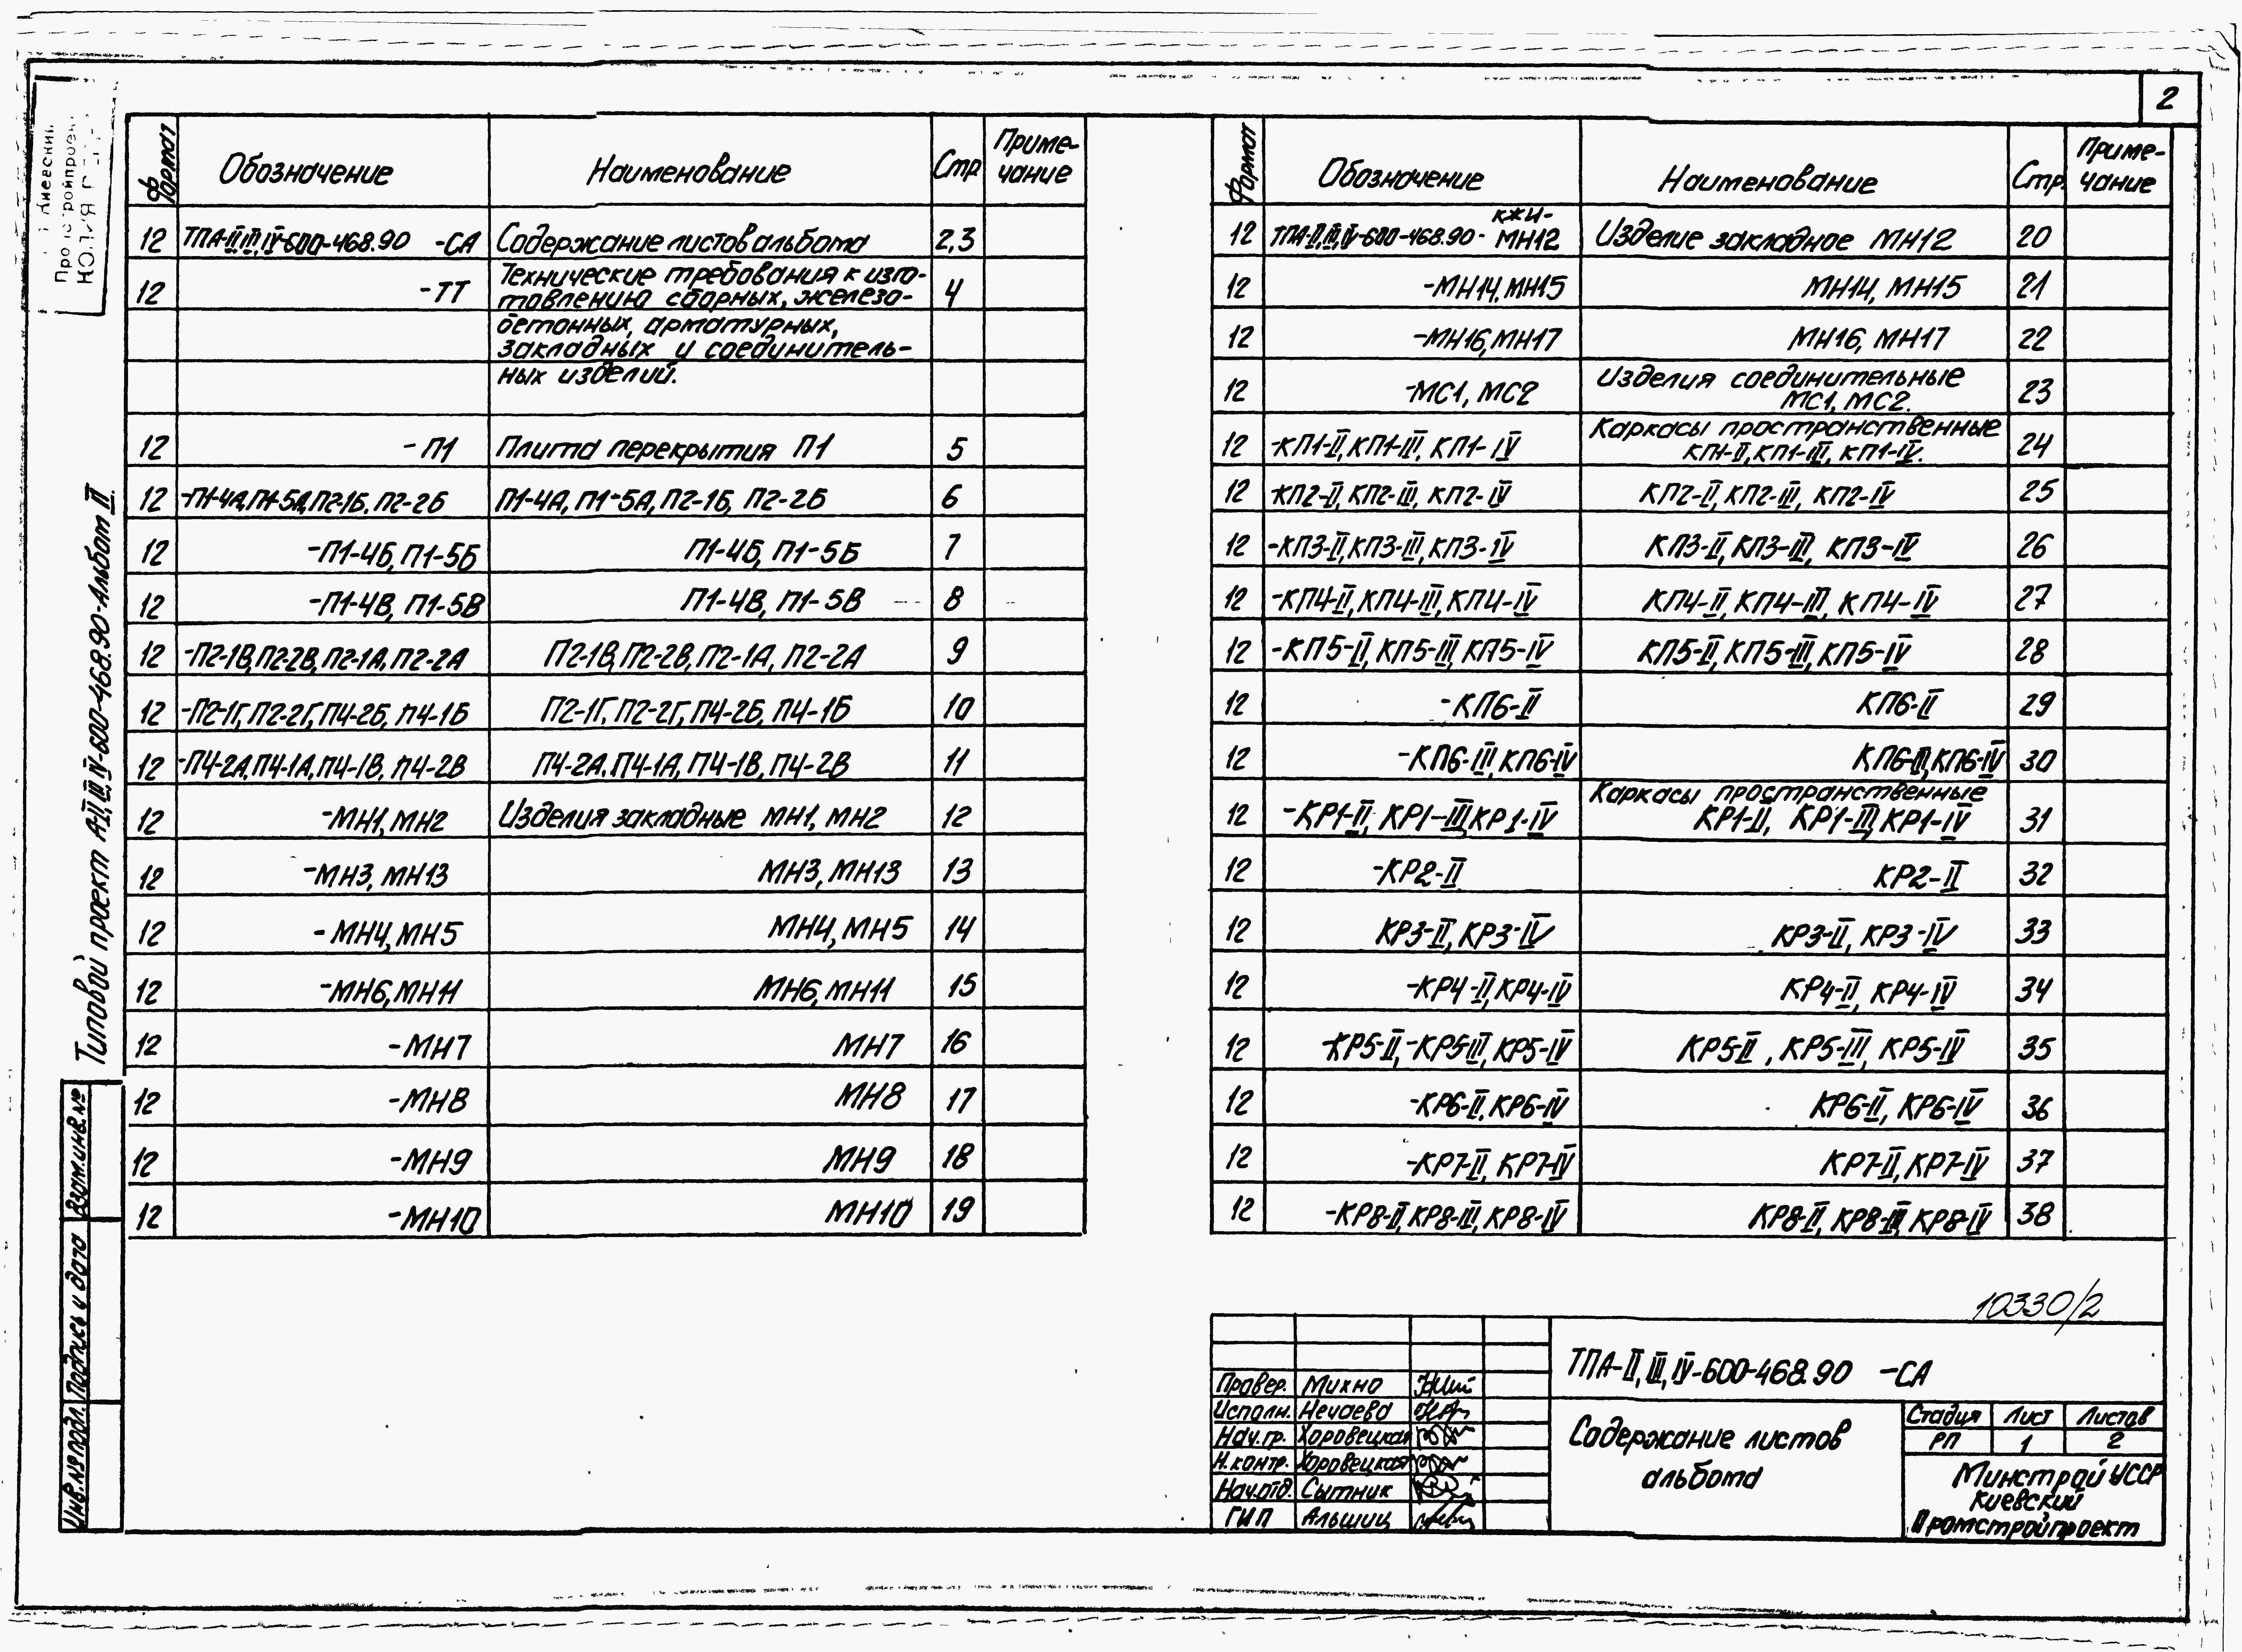 2
Формат Обозначение Наименование Стр Приме-чание
12 ТПА-II,III,IV-600-468.90 -СА Содержание листов альбома 2,3
12 -ТТ Технические требования к изго-
товлению сборных, железо- 4
бетонных, арматурных,
закладных и соединитель-
ных изделий.
12 -П1 Плита перекрытия П1 5
12 -П1-4А, П1-5А, П2-1Б, П2-2Б П1-4А, П1-5А, П2-1Б, П2-2Б 6
12 -П1-4Б, П1-5Б П1-4Б, П1-5Б 7
12 -П1-4В, П1-5В П1-4В, П1-5В 8
12 -П2-1В, П2-2В, П2-1А, П2-2А П2-1В, П2-2В, П2-1А, П2-2А 9
12 -П2-1Г, П2-2Г, П4-2Б, П4-1Б П2-1Г, П2-2Г, П4-2Б, П4-1Б 10
12 -П4-2А, П4-1А, П4-1В, П4-2В П4-2А, П4-1А, П4-1В, П4-2В 11
12 -МН1, МН2 Изделия закладные МН1, МН2 12
12 -МН3, МН13 МН3, МН13 13
12 -МН4, МН5 МН4, МН5 14
12 -МН6, МН11 МН6, МН11 15
12 -МН7 МН7 16
12 -МН8 МН8 17
12 -МН9 МН9 18
12 -МН10 МН10 19
Формат Обозначение Наименование Стр. Приме-чание
12 ТПА-II,III,IV-600-468.90- КЖИ-МН12 Изделие закладное МН12 20
12 -МН14, МН15 МН14, МН15 21
12 -МН16, МН17 МН16, МН17 22
12 -МС1, МС2 Изделия соединительные
МС1, МС2. 23
12 -КП1-II, КП1-III, КП1-IV Каркасы пространственные
КП1-II, КП1-III, КП1-IV. 24
12 -КП2-II, КП2-III, КП2-IV КП2-II, КП2-III, КП2-IV 25
12 -КП3-II, КП3-III, КП3-IV КП3-II, КП3-III, КП3-IV 26
12 -КП4-II, КП4-III, КП4-IV КП4-II, КП4-III, КП4-IV 27
12 -КП5-II, КП5-III, КП5-IV КП5-II, КП5-III, КП5-IV 28
12 -КП6-II КП6-II 29
12 -КП6-III, КП6-IV КП6-III, КП6-IV 30
12 -КР1-II, КР1-III, КР1-IV Каркасы пространственные
КР1-II, КР1-III, КР1-IV 31
12 -КР2-II КР2-II 32
12 КР3-II, КР3-IV КР3-II, КР3-IV 33
12 -КР4-II, КР4-IV КР4-II, КР4-IV 34
12 -КР5-II, -КР5-III, КР5-IV КР5-II, КР5-III, КР5-IV 35
12 -КР6-II, КР6-IV КР6-II, КР6-IV 36
12 -КР7-II, КР7-IV КР7-II, КР7-IV 37
12 -КР8-II, КР8-III, КР8-IV КР8-II, КР8-III, КР8-IV 38
Типовой проект А-II,III,IV-600-468.90-Альбом II.
Взам.инв.№
Подпись и дата
Инв.№ подл.
10330/2
ТПА-II,III,IV-600-468.90 -СА
Провер. Михно
Исполн. Нечаева
Нач.гр. Хоровецкая
Н.контр. Хоровецкая
Нач.отд. Сытник
ГИП Альшиц
Содержание листов
альбома
Стадия Лист Листов
РП 1 2
Минстрой УССР
Киевский
Промстройпроект